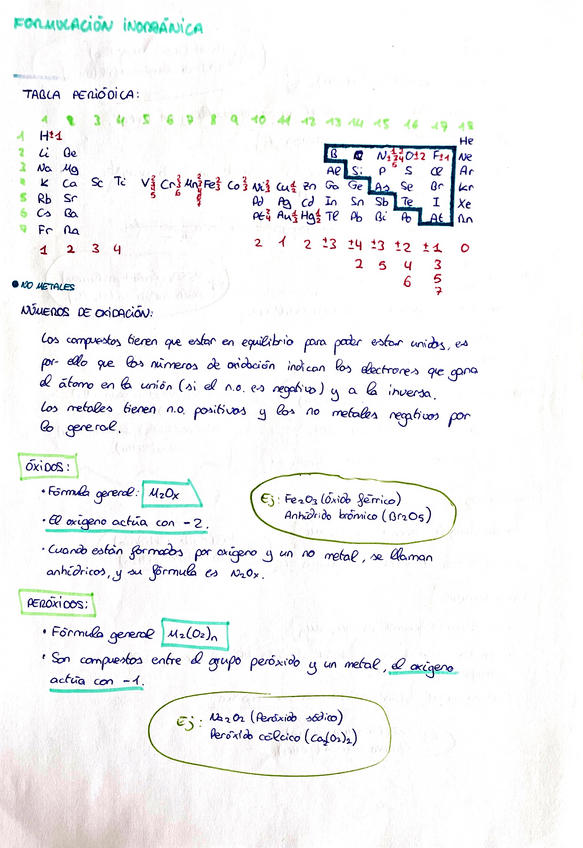 FORMULACIÓN INORGÁNICA
TABLA PERIÓDICA:
1 2 3 4 5 6 7 8 9 10 11 12 13 14 15 16 17 18
1 H±1 He
2 Li Be B C N O±2 F±1 Ne
3 Na Mg Al Si P S Cl Ar
4 K Ca Sc Ti V Cr Mn Fe Co Ni Cu Zn Ga Ge As Se Br Kr
5 Rb Sr Pd Ag Cd In Sn Sb Te I Xe
6 Cs Ba Pt Au Hg Tl Pb Bi Po At Rn
7 Fr Ra
1 2 3 4 2 1 2 ±3 ±4 ±3 ±2 ±1 0
2 5 4 3
6 5
7
• NO METALES
NÚMEROS DE OXIDACIÓN:
Los compuestos tienen que estar en equilibrio para poder estar unidos, es
por ello que los números de oxidación indican los electrones que gana
el átomo en la unión (si el n.o. es negativo) y a la inversa.
Los metales tienen n.o. positivos y los no metales negativos por
lo general.
ÓXIDOS:
• Fórmula general: M₂Oₓ
• El oxígeno actúa con -2.
Ej: Fe₂O₃ (óxido férrico)
Anhídrido brómico (Br₂O₅)
• Cuando están formados por oxígeno y un no metal, se llaman
anhídricos, y su fórmula es N₂Oₓ.
PERÓXIDOS:
• Fórmula general M₂(O₂)ₙ
• Son compuestos entre el grupo peróxido y un metal, el oxígeno
actúa con -1.
Ej: Na₂O₂ (Peróxido sódico)
Peróxido cálcico (Ca₂(O₂)₂)